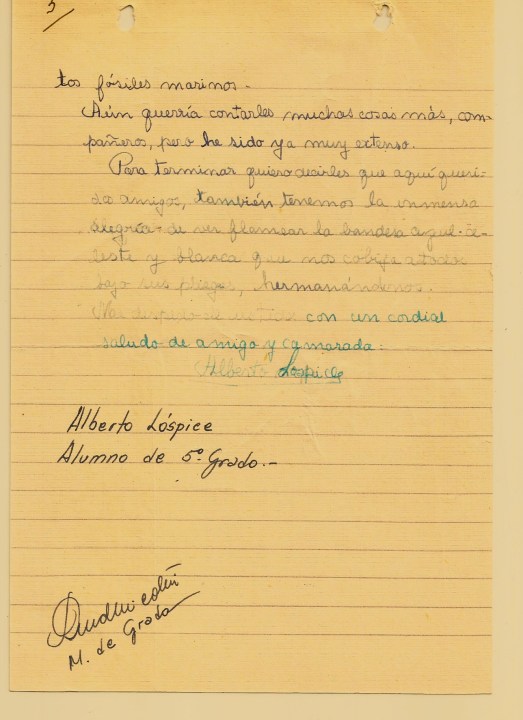 5
tos fósiles marinos.-
Aún querría contarles muchas cosas más, com-
pañeros, pero he sido ya muy extenso.
Para terminar quiero decirles que aquí queri-
dos amigos, también tenemos la inmensa
alegría de ver flamear la bandera azul-ce-
leste y blanca que nos cobija a todos
bajo sus pliegues, hermanándonos.
Me despido de con un cordial
saludo de amigo y camarada:
Alberto Lóspice
Alberto Lóspice
Alumno de 5º Grado.-
M. de Grado